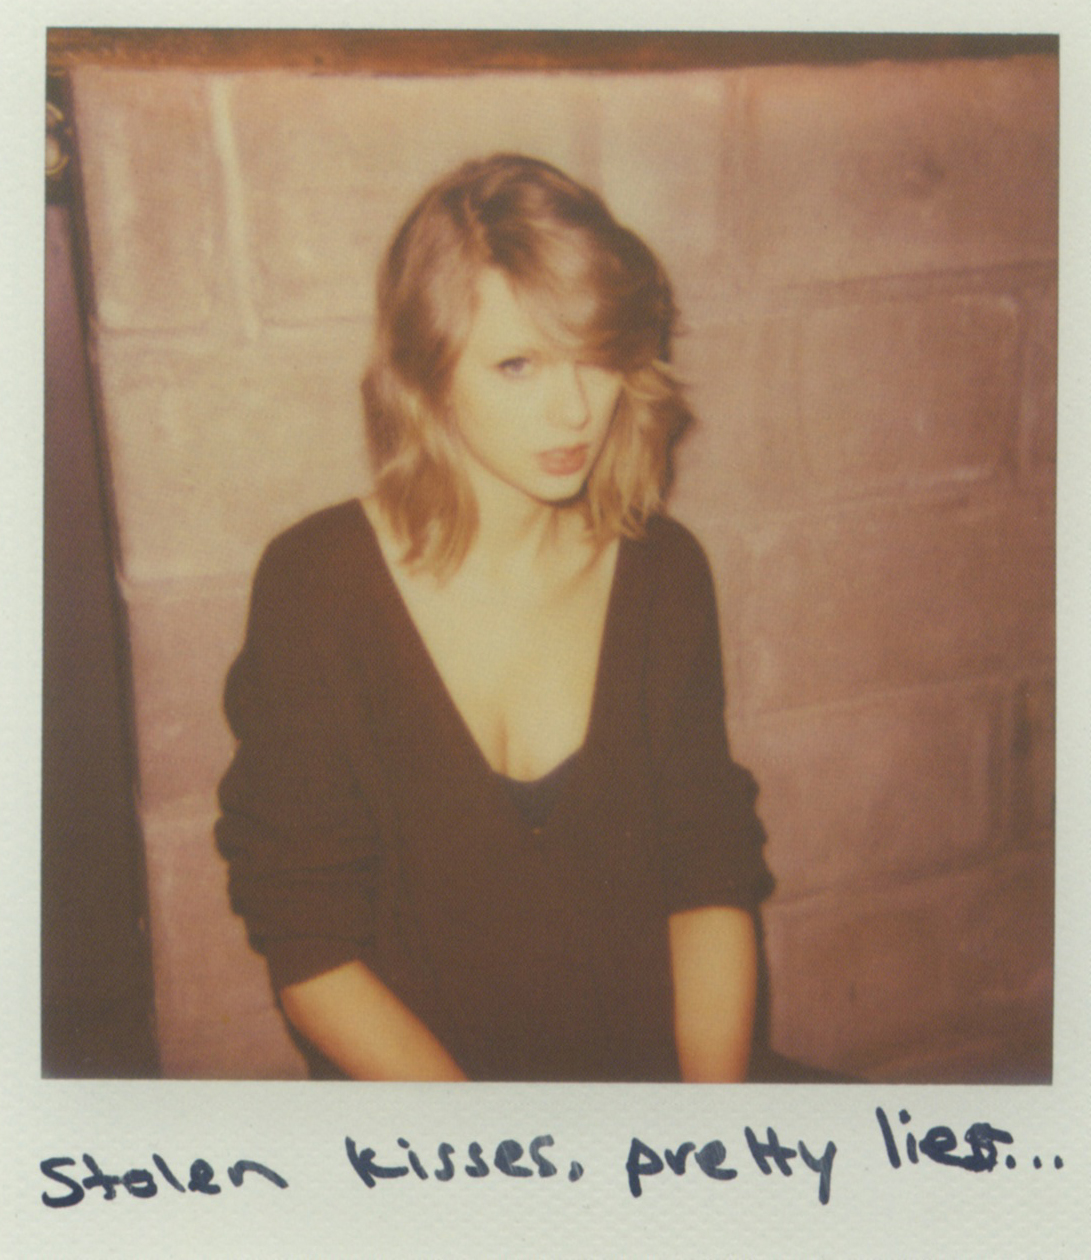 Stolen kisses, pretty lies...